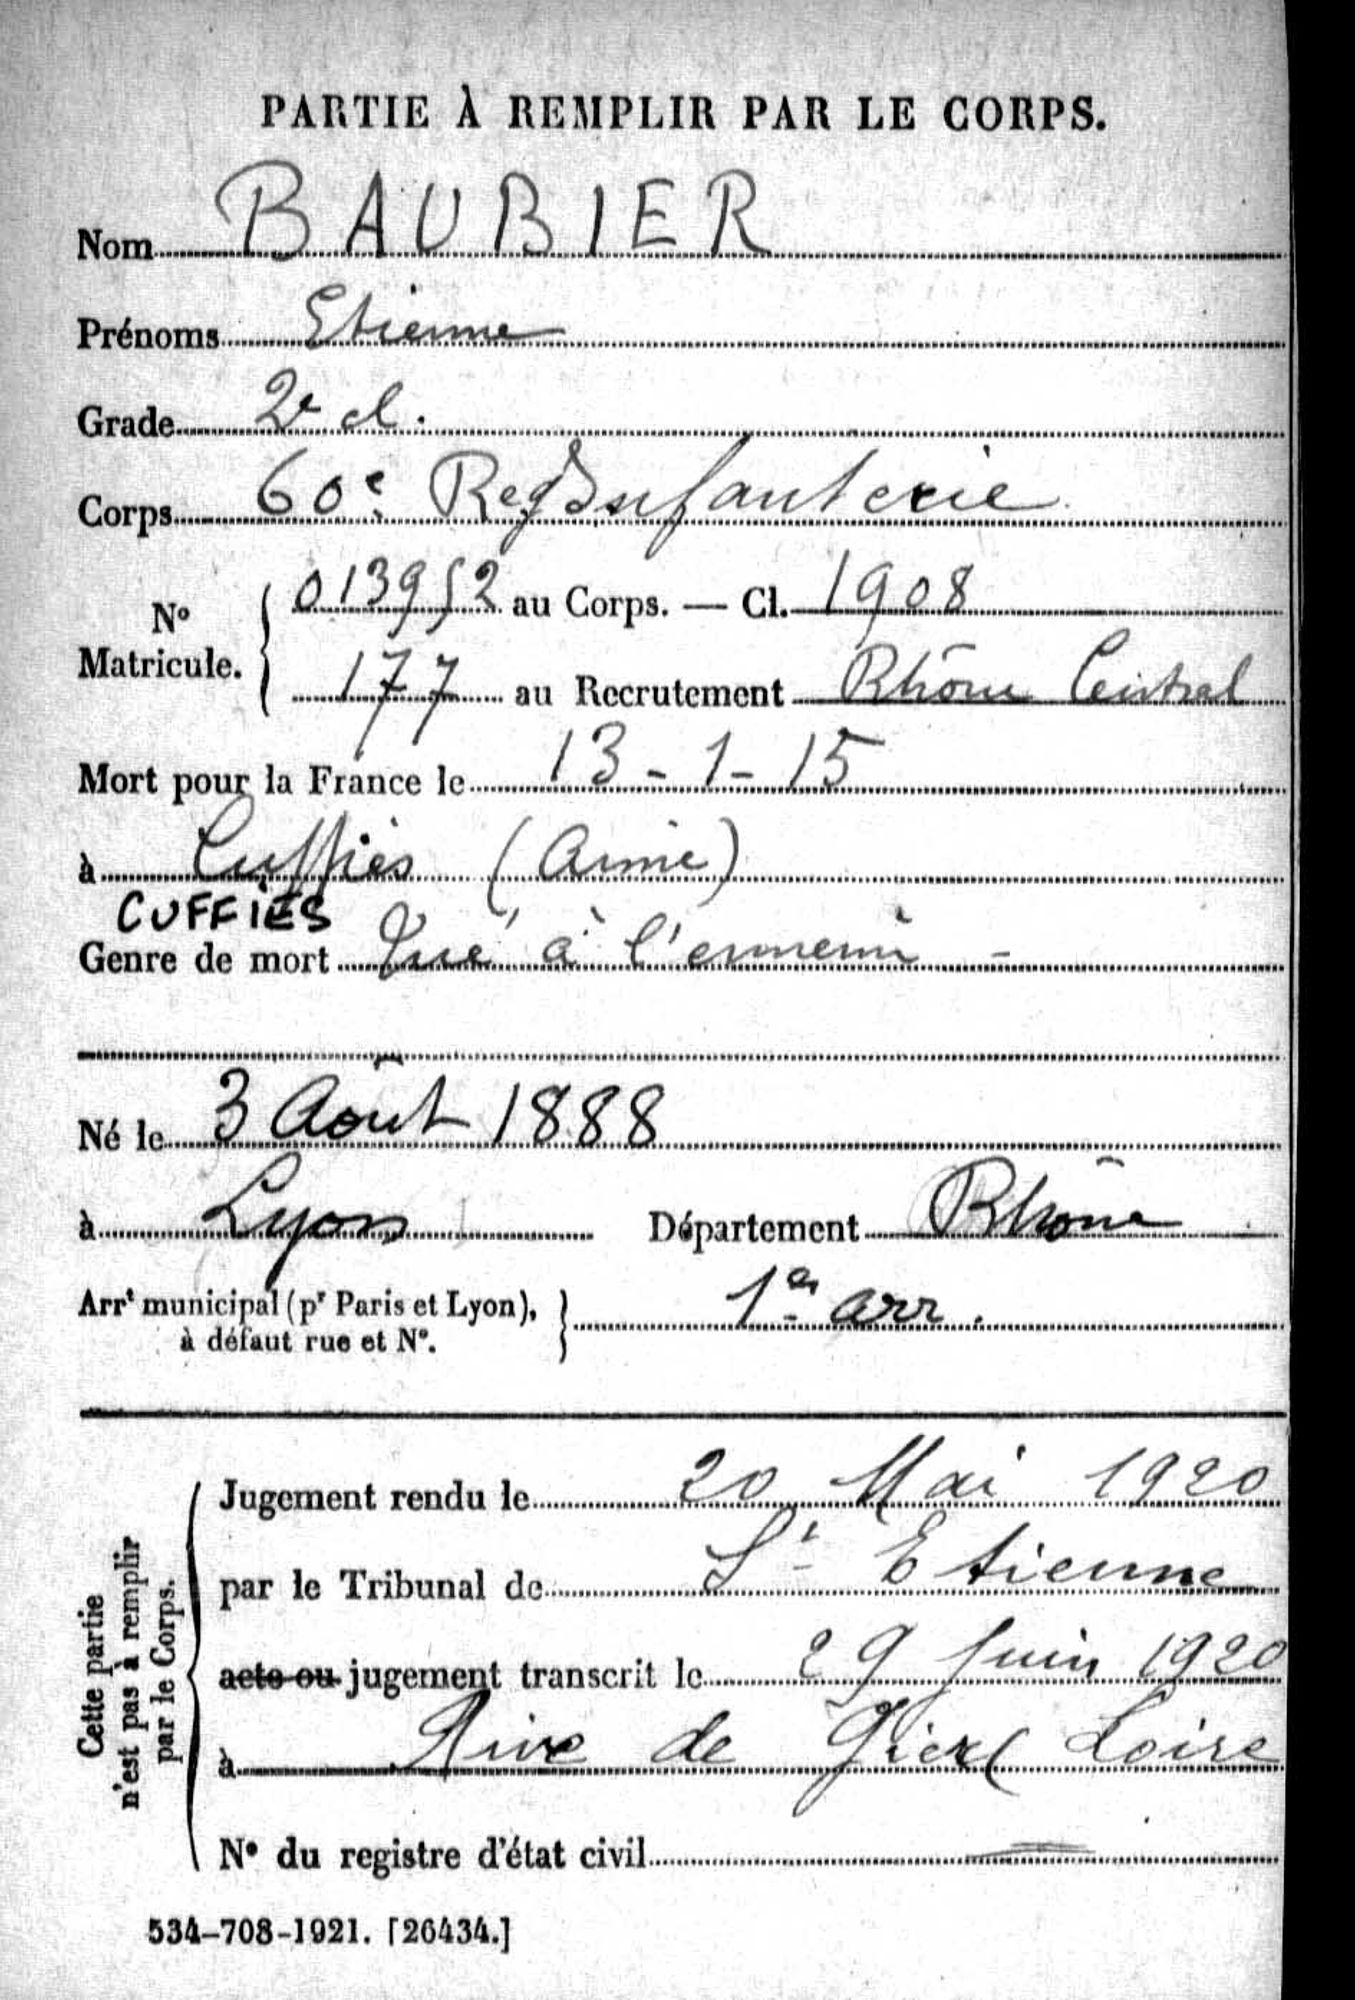 PARTIE À REMPLIR PAR LE CORPS.
Nom BAUBIER
Prénoms Etienne
Grade 2e cl.
Corps 60e Reg Infanterie
No Matricule. 013952 au Corps. — Cl. 1908
177 au Recrutement Rhône Central
Mort pour la France le 13-1-15
à Cuffiès (Aisne)
CUFFIES
Genre de mort Tué à l'ennemi -
Né le 3 Août 1888
à Lyon Département Rhône
Arrt municipal (pr Paris et Lyon), à défaut rue et No. 1er arr.
Cette partie n'est pas à remplir par le Corps.
Jugement rendu le 20 Mai 1920
par le Tribunal de St Etienne
acte ou jugement transcrit le 29 Juin 1920
à Rive de Gier (Loire
No du registre d'état civil —
534-708-1921. [26434.]